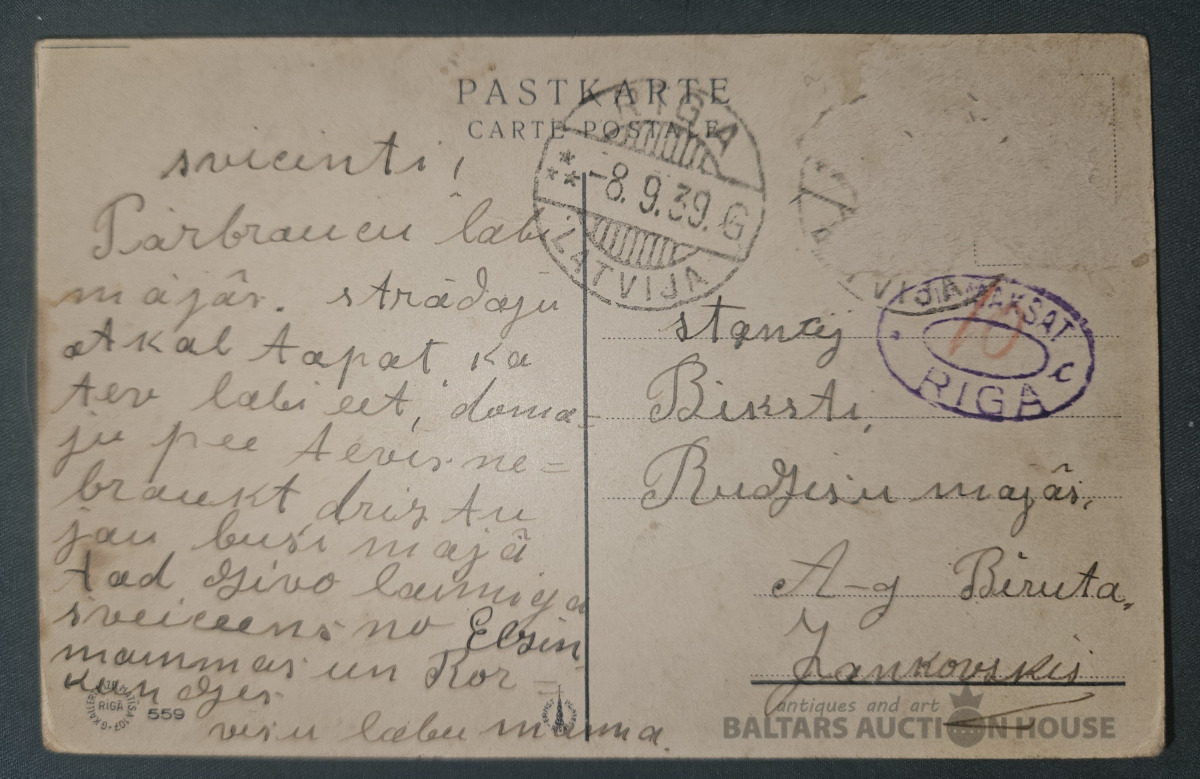 PASTKARTE
CARTE POSTALE
RIGA
-8.9.39.G
LATVIJA
svicinti,
Pārbraucu labi
mājās. strādaju
Atkal tapat ka
tev labi eet, doma-
ju pee tevis ne=
braukt driz tu
jau busi majâ
tad dzivo laimiga
sveiceens no Elzin
mammas un Kor=
visu labu mamma.
VIJA
AKSAT
10 c
RIGA
stancij
Biksti,
Rudzisu majâs,
A-g Biruta,
Jankovskis
RIGA
559
antiques and art
BALTARS AUCTION HOUSE